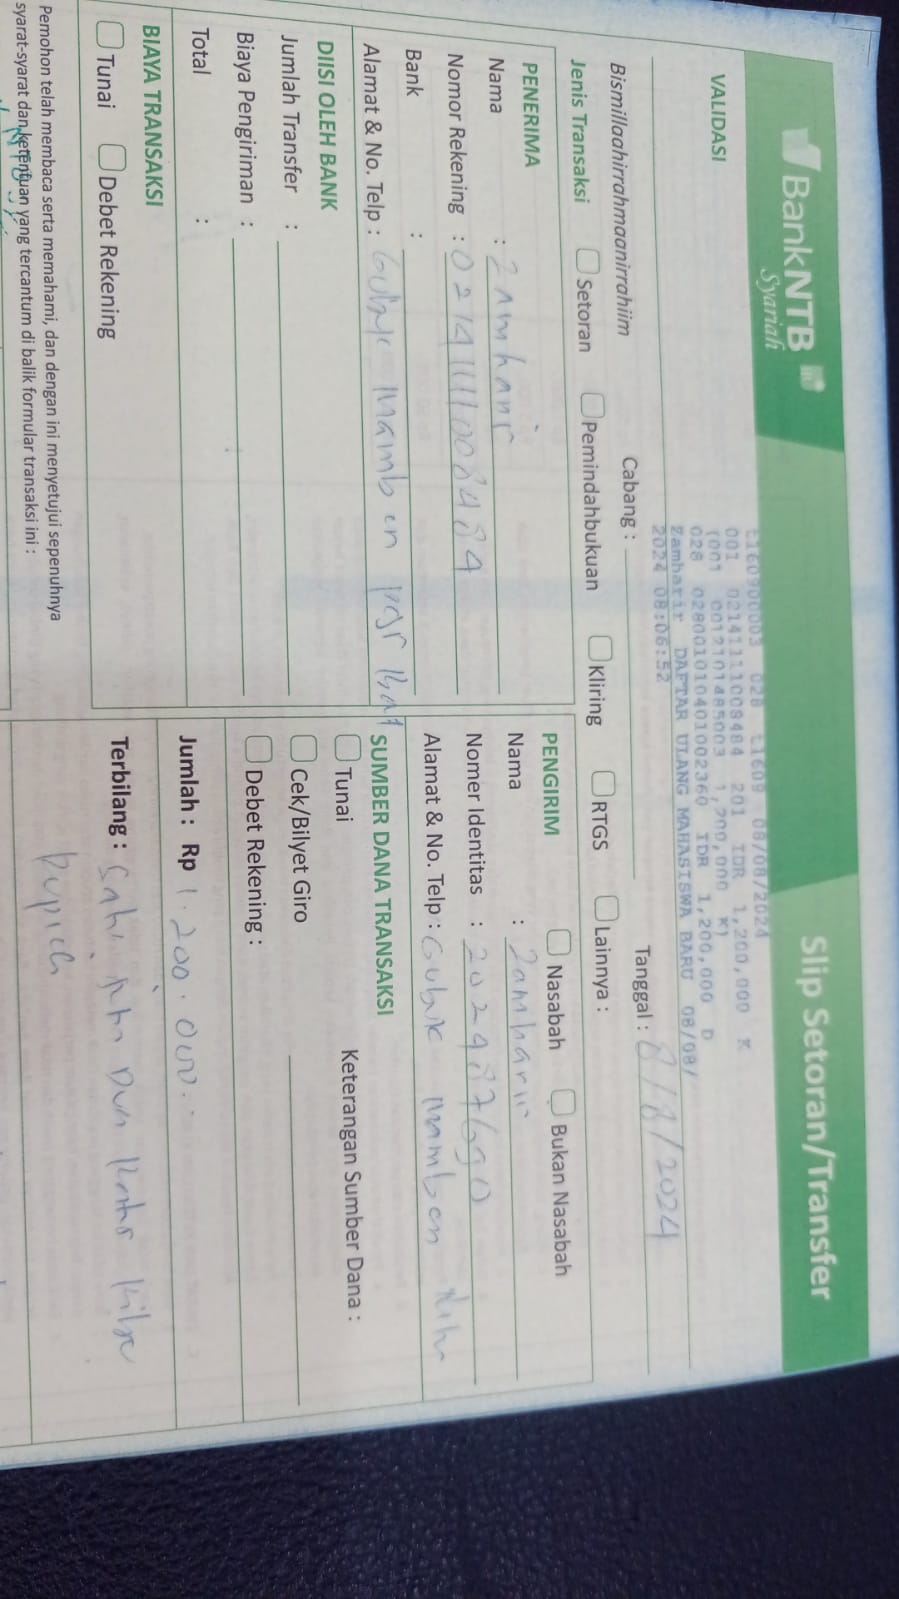 BankNTB
Syariah
Slip Setoran/Transfer
VALIDASI
E1609D0003 028 t1609 08/08/2024
001 0214111108484 201 IDR 1,200,000 K
(001 0012101485003 1,200,000 K)
028 028001010401002360 IDR 1,200,000 D
Zamharir DAFTAR ULANG MAHASISWA BARU 08/08/
2024 08:06:52
Bismillaahirrahmaanirrahiim
Cabang :
Tanggal : 8/8/2024
Jenis Transaksi Setoran Pemindahbukuan Kliring RTGS Lainnya :
PENERIMA
Nama : Zamharir
Nomor Rekening :
Bank :
Alamat & No. Telp : Gubuk Mamben
PENGIRIM Nasabah Bukan Nasabah
Nama : Zamharir
Nomer Identitas :
Alamat & No. Telp : Gubuk Mamben
DIISI OLEH BANK
Jumlah Transfer :
Biaya Pengiriman :
Total :
SUMBER DANA TRANSAKSI
Tunai
Cek/Bilyet Giro
Debet Rekening :
Keterangan Sumber Dana :
BIAYA TRANSAKSI
Tunai Debet Rekening
Jumlah : Rp 1.200.000
Terbilang :
Pemohon telah membaca serta memahami, dan dengan ini menyetujui sepenuhnya
syarat-syarat dan ketentuan yang tercantum di balik formular transaksi ini :